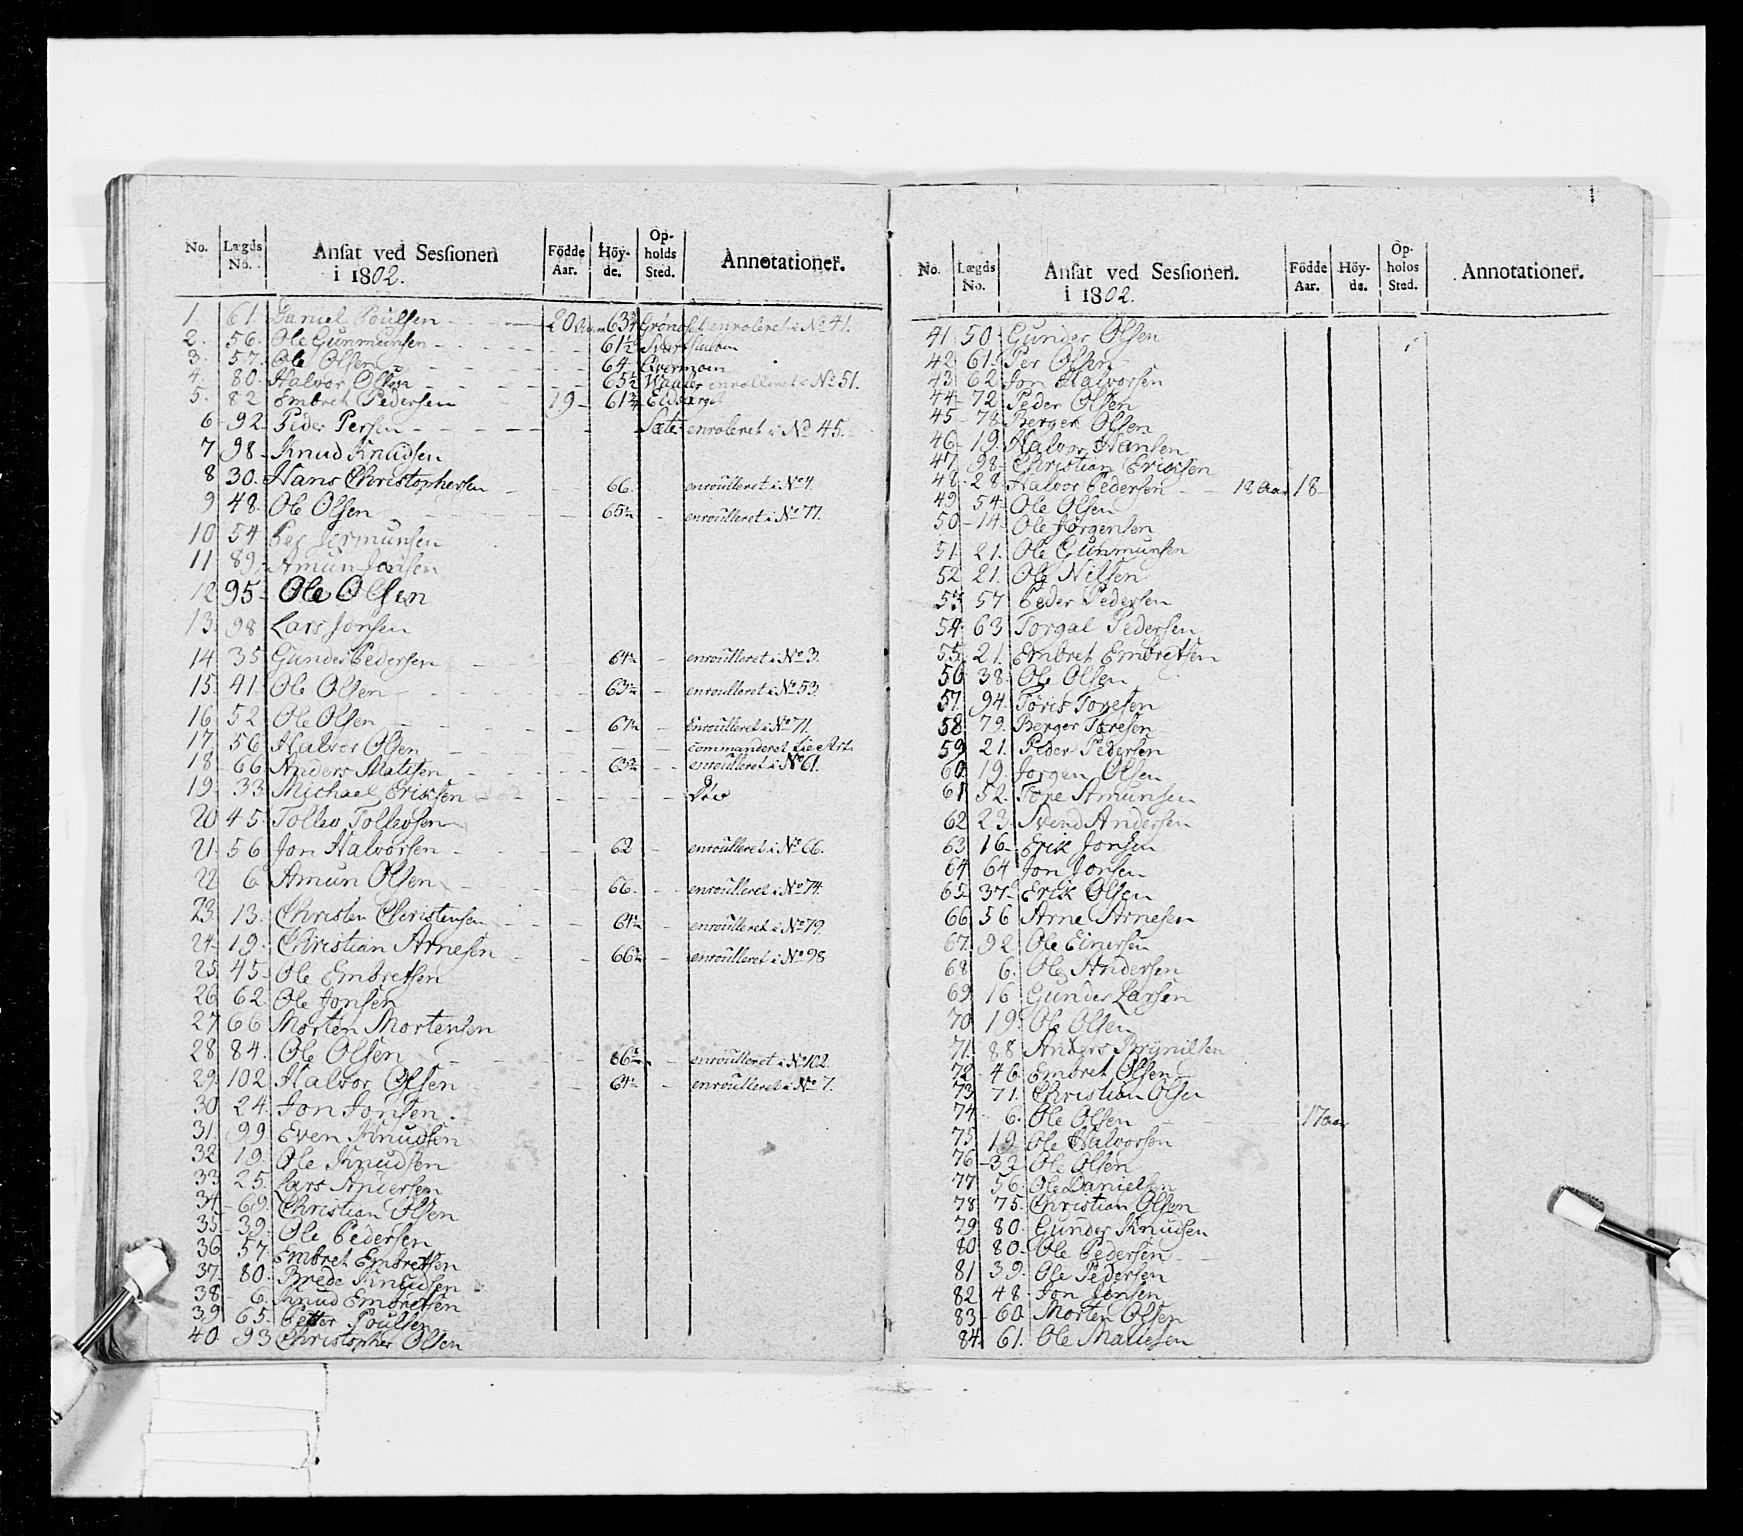 No. Lægds No. Ansat ved Sessionen i 1802. Födde Aar. Höyde. Opholds Sted. Annotationer.
1. 61. Daniel Poulsen 20 63¾ Grønoset enroleret i No 41.
2. 56. Ole Gunmunsen 61½
3. 57. Ole Olsen 64 Qvermoen
4. 80. Halvor Olsen 65½ Waaler enrolleret i No 51.
5. 82 Embret Pedersen 19 61¾
6 92 Peder Persen Sæte enroleret i No 45.
7 98 Knud Knudsen
8 30. Hans Christophersen 66. enroulleret i No 4.
9 48. Ole Olsen 65½ enroulleret i No 77.
10 54 Per Jermunsen
11 89. Amun Jonsen
12 95 Ole Olsen
13. 98 Lars Jonsen
14 35 Gunder Pedersen 64½ enroulleret i No 3.
15. 41. Ole Olsen 63½ enroulleret i No 53.
16 52. Ole Olsen enroulleret i No 71.
17. 56 Halvor Olsen commanderet
18 66. Anders Matisen 63½ enroulleret i No 61.
19. 33. Michael Eriksen
20 45 Tollev Tollevsen
21. 56 Jon Halvorsen 62 enroulleret i No 66.
22 6 Amun Olsen 66. enroulleret i No 74.
23. 13. Christen Christensen 64½ enroulleret i No 79.
24 19. Christian Arnesen 66½ enroulleret i No 98
25 45 Ole Embretsen
26 62 Ole Jonsen
27 66 Morten Mortensen
28 84. Ole Olsen enroulleret i No 102.
29. 102. Halvor Olsen 64½ enroulleret i No 7.
30 24. Jon Jonsen.
31 99 Even Knudsen
32 19. Ole Knudsen
33 25. Lars Andersen
34 69. Christian Olsen
35 39. Ole Pedersen
36 57. Embret Embretsen
37. 80. Brede Knudsen
38 6. Knud Embretsen
39 65. Petter Poulsen
40. 93 Christopher Olsen
No. Lægds No. Ansat ved Sessionen. i 1802. Födde Aar. Höyde. Opholds Sted. Annotationer.
41. 50. Gunder Olsen
42 61. Per Olsen
43 62 Jon Halvorsen
44 72. Peder Olsen
45 78. Berger Olsen
46 19. Halvor Hansen
47 98. Christian Eriksen
48. 28 Halvor Pedersen 18 Aar 18
49 54 Ole Olsen
50 14. Ole Jørgensen
51. 21. Ole Gunmunsen
52 21. Ole Nilsen
53 57 Peder Pedersen
54 63 Torgal Pedersen
55 21. Embret Embretsen
56 38. Ole Olsen
57. 94. Toris Toresen
58 79. Berger Toresen
59 21. Peder Pedersen
60. 19. Jorgen Olsen
61 52. Tore Amunsen
62 23. Svend Andersen
63 16 Erik Jonsen
64 64 Jon Jonsen
65 37 Erik Olsen
66 56 Arne Arnesen
67. 92 Ole Einersen
68 6. Ole Andersen
69 16 Gunder Larsen
70 19. Ole Olsen
71. 88 Anders Brynilsen
72 46 Embret Olsen
73 71. Christian Olsen
74 6. Ole Olsen 17 aar
75 19. Ole Halvorsen
76 32 Ole Olsen
77 56 Ole Danielsen
78 75. Christian Olsen
79 80. Gunder Knudsen
80 80. Ole Pedersen
81 39. Ole Pedersen
82 48. Jon Jensen
83 60. Morten Olsen
84. 61. Ole Matiesen